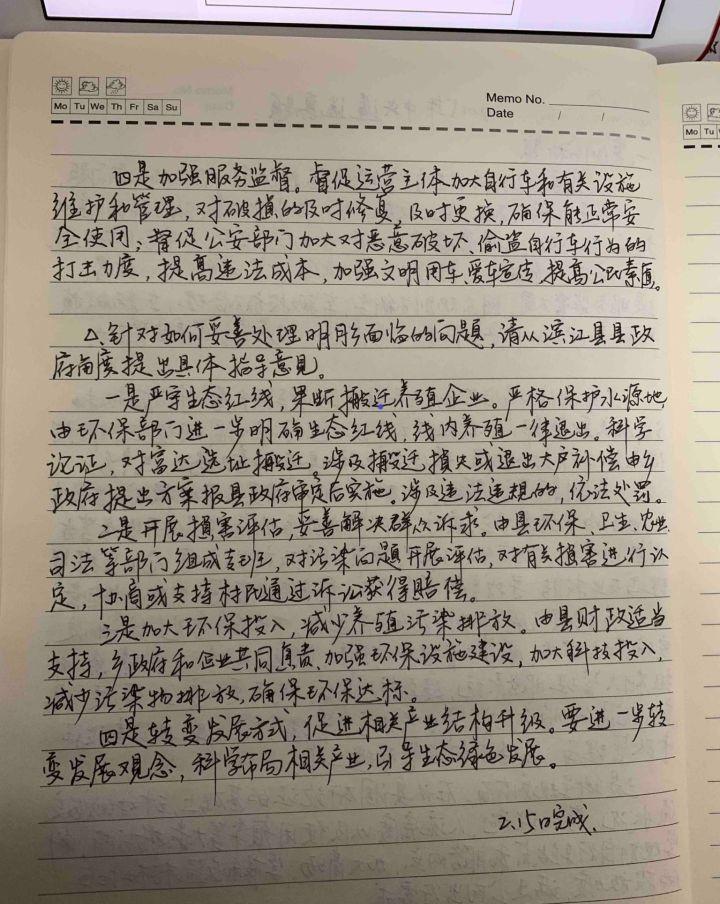 Mo Tu We Th Fr Sa Su
Memo No.
Date / /
Mo Tu
四是加强服务监督。督促运营主体加大自行车和有关设施
维护和管理，对破损的及时修复，及时更换，确保能正常安
全使用；督促公安部门加大对恶意破坏、偷盗自行车行为的
打击力度，提高违法成本，加强文明用车、爱车宣传，提高公民素质。
△针对如何妥善处理明彤面临的问题，请从滨江县县政
府角度提出具体指导意见。
一是严守生态红线，果断搬迁养殖企业。严格保护水源地，
由环保部门进一步明确生态红线，线内养殖一律退出。科学
论证，对富达选址搬迁。涉及搬迁损失或退出大户补偿由乡
政府提出方案报县政府审定后实施。涉及违法违规的，依法处罚。
二是开展损害评估，妥善解决群众诉求。由县环保、卫生、农业、
司法等部门组成专班，对污染问题开展评估，对有关损害进行认
定，协商或支持村民通过诉讼获得赔偿。
三是加大环保投入，减少养殖污染排放。由县财政适当
支持，乡政府和企业共同负责，加强环保设施建设，加大科技投入，
减少污染物排放，确保环保达标。
四是转变发展方式，促进相关产业结构升级。要进一步转
变发展观念，科学布局相关产业，引导生态绿色发展。
2.15日完成.